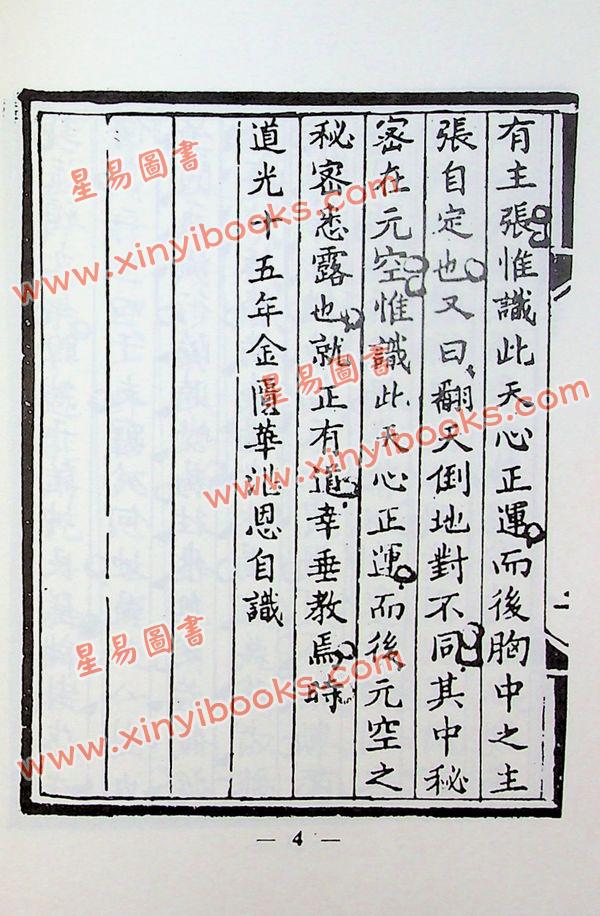 有主張惟識此天心正運而後胸中之主
張自定也又曰翻天倒地對不同其中秘
密在元空惟識此天心正運而後元空之
秘密悉露也就正有道幸垂教焉時
道光十五年金匱華湛恩自識
— 4 —
星易圖書
www.xinyibooks.com
星易圖書
www.xinyibooks.com
星易圖書
www.xinyibooks.com